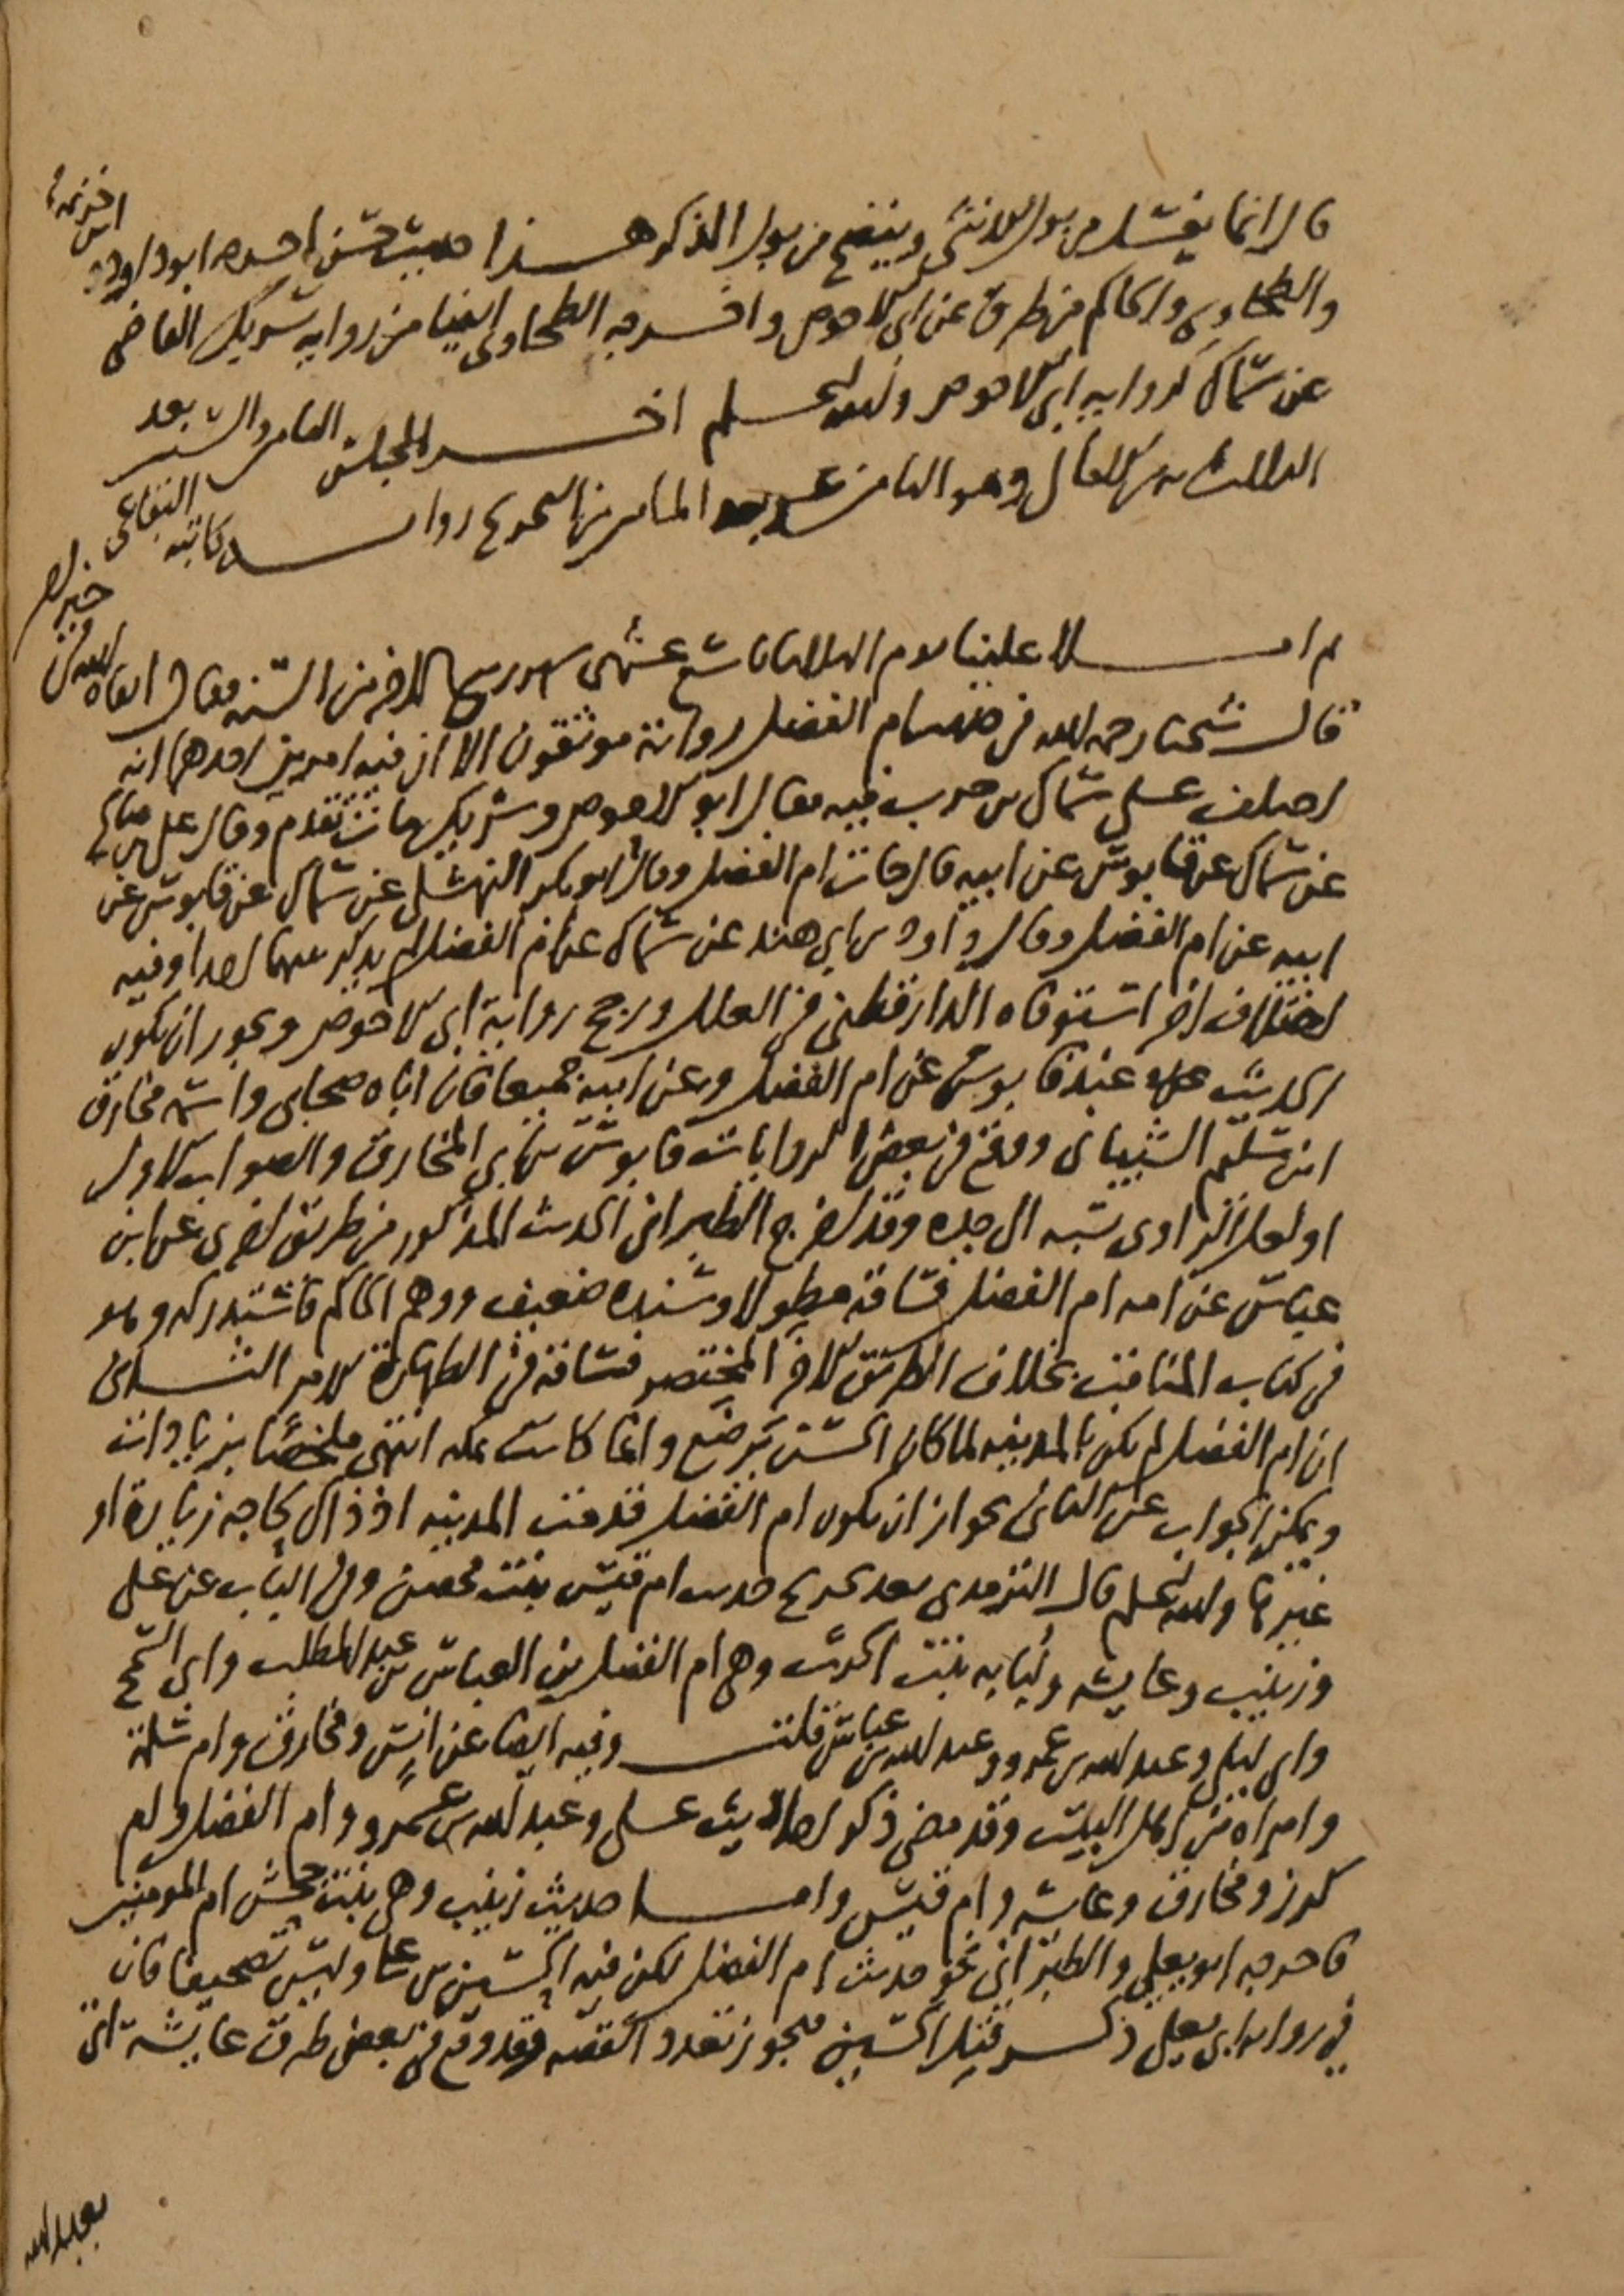 قال انما يغسل من بول الانثى وينضح من بول الذكر هذا حديث حسن اخرجه ابو داود
وابن خزيمة
والطحاوي والحاكم من طرق عن ابي الاحوص واخرجه الطحاوي ايضا من رواية شريك القاضي
عن سماك كرواية ابي الاحوص والله اعلم اخر المجلس الثامن والستين بعد
الثلاثمائة من الامالي وهو الثامن عشر بعد المائتين من التخريج رواية كاتبه البقاعي
ثم املا علينا يوم الثلاثاء تاسع عشري شهر ربيع الاخر من السنة فقال ابقاه الله في خير
قال شيخنا رحمه الله في حديث ام الفضل رواته موثقون الا ان فيه امرين احدهما انه
اختلف على سماك بن حرب فيه فقال ابو الاحوص وشريك هكذا تقدم وقال علي بن صالح
عن سماك عن قابوس عن ابيه قال جات ام الفضل وقال ابو بكر النهشلي عن سماك عن قابوس عن
ابيه عن ام الفضل وقال داود بن ابي هند عن سماك عن ام الفضل لم يذكر بينهما احدا وفيه
اختلاف اخر استوفاه الدارقطني في العلل ورجح رواية ابي الاحوص ويجوز ان يكون
الحديث عند قابوس عن ام الفضل وعن ابيه جميعا فان اباه صحابي واسمه مخارق
ابن سليم الشيباني ووقع في بعض الروايات قابوس بن ابي المخارق والصواب الاول
او لعل الراوي نسبه الى جده وقد اخرج الطبراني الحديث المذكور من طريق اخرى عن ابن
عباس عن امه ام الفضل فساقه مطولا وسنده ضعيف ووهم الحاكم فاستدركه وهو
في كتاب المناقب بخلاف الطريق الاخر المختصر فساقه في الطهارة الامر الثاني
ان ام الفضل لم تكن بالمدينة لما كان الحسن يرضع وانما كانت بمكة انتهى ملخصا بزيادات
ويمكن الجواب عن الثاني بجواز ان تكون ام الفضل قدمت المدينة اذ ذاك لحاجة زيارة او
غيرها والله اعلم قال الترمذي بعد تخريج حديث ام قيس بنت محصن وفي الباب عن علي
وزينب وعايشة ولبابة بنت الحرث وهي ام الفضل بن العباس بن عبد المطلب وابي السمح
وابي ليلى وعبد الله بن عمرو وعبد الله بن عباس قلت وفيه ايضا عن انس ومخارق وام سلمة
وامراة من اهل البيت وقد مضى ذكر احاديث علي وعبد الله بن عمرو وام الفضل وام
كرز ومخارق وعايشة وام قيس واما حديث زينب وهي بنت جحش ام المومنين
فاخرجه ابو يعلى والطبراني نحو حديث ام الفضل لكن فيه الحسين بن علي وليس تصحيفا فان
في رواية ابي يعلى ذكر قتل الحسين فيجوز تعدد القصة فقد وقع في بعض طرق عايشة اتي
بعبد الله